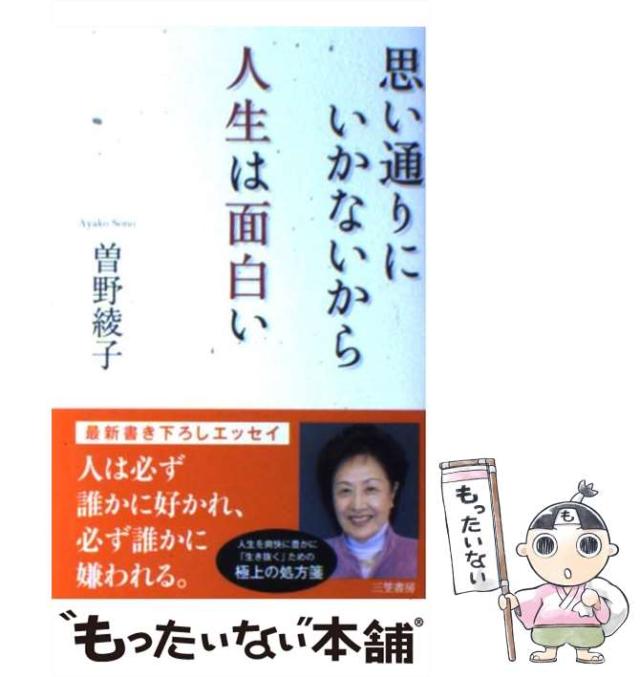 思い通りに
いかないから
人生は面白い
Ayako Sono
曽野綾子
最新書き下ろしエッセイ
人は必ず
誰かに好かれ、
必ず誰かに
嫌われる。
人生を爽快に豊かに
「生き抜く」ための
極上の処方箋
三笠書房
“もったいない”本舗®
もったいない
も